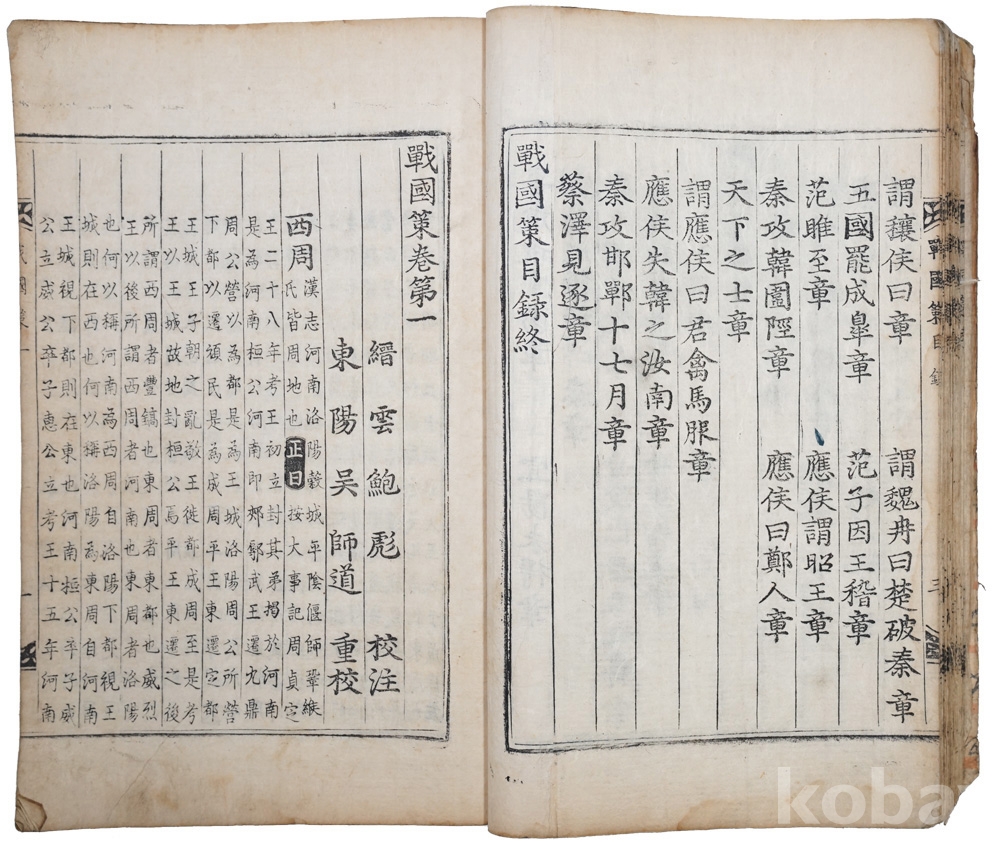 戰國策目録
謂穰侯曰章 謂魏冉曰楚破秦章
五國罷成臯章 范子因王稽章
范雎至章 應侯謂昭王章
秦攻韓圍陘章 應侯曰鄭人章
天下之士章
謂應侯曰君禽馬服章
應侯失韓之汝南章
秦攻邯鄲十七月章
蔡澤見逐章
戰國策目録終
戰國策卷第一
縉雲鮑彪 校注
東陽吳師道 重校
西周 漢志河南洛陽穀城平陰偃師鞏緱
氏皆周地也 正曰 按大事記周貞定
王二十八年考王初立封其弟揭於河南
是為河南桓公河南即郟鄏武王遷九鼎
周公營以為都是為王城洛陽周公所營
下都以遷頑民是為成周平王東遷定都
王城王子朝之亂敬王徙都成周至是考
王以王城故地封桓公焉平王東遷之後
所謂西周者豐鎬也東周者東都也威烈
王以後所謂西周者河南也東周者洛陽
也何以稱河南為西周自洛陽下都視王
城則在西也何以稱洛陽為東周自河南
王城視下都則在東也河南桓公卒子威
公立威公卒子惠公立考王十五年河南
koba